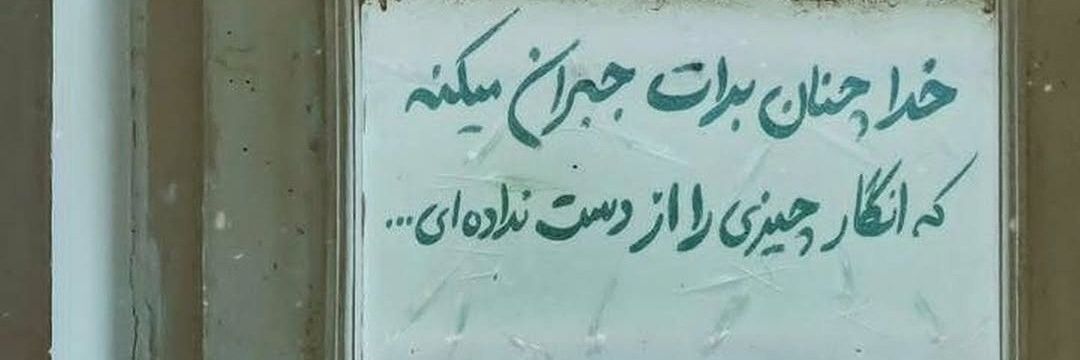 خدا چنان برات جبران میکنه
که انگار چیزی را از دست نداده ای...